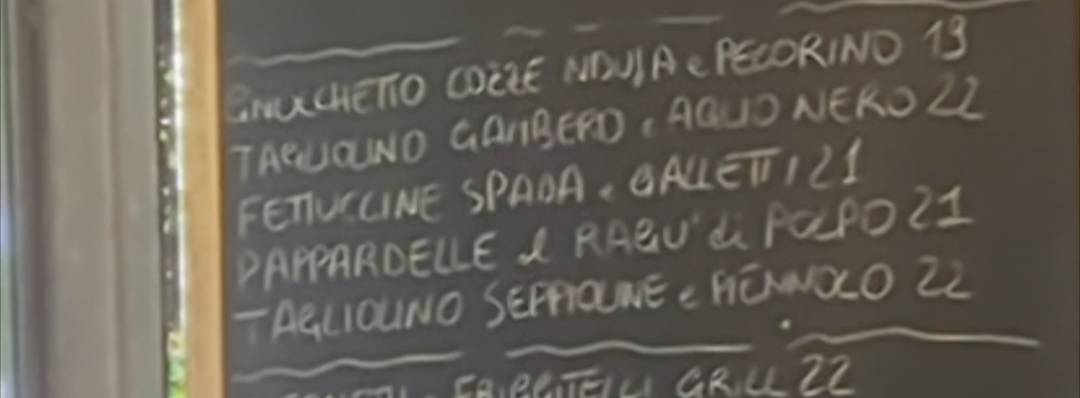 GNOCCHETTO COZZE NDUJA e PECORINO 19
TAGLIOLINO GAMBERO e AGLIO NERO 22
FETTUCCINE SPADA e GALLETTI 21
PAPPARDELLE al RAGU' di POLPO 21
TAGLIOLINO SEPPIOLINE e PIENNOLO 22
FRIGGITELLI GRILL 22